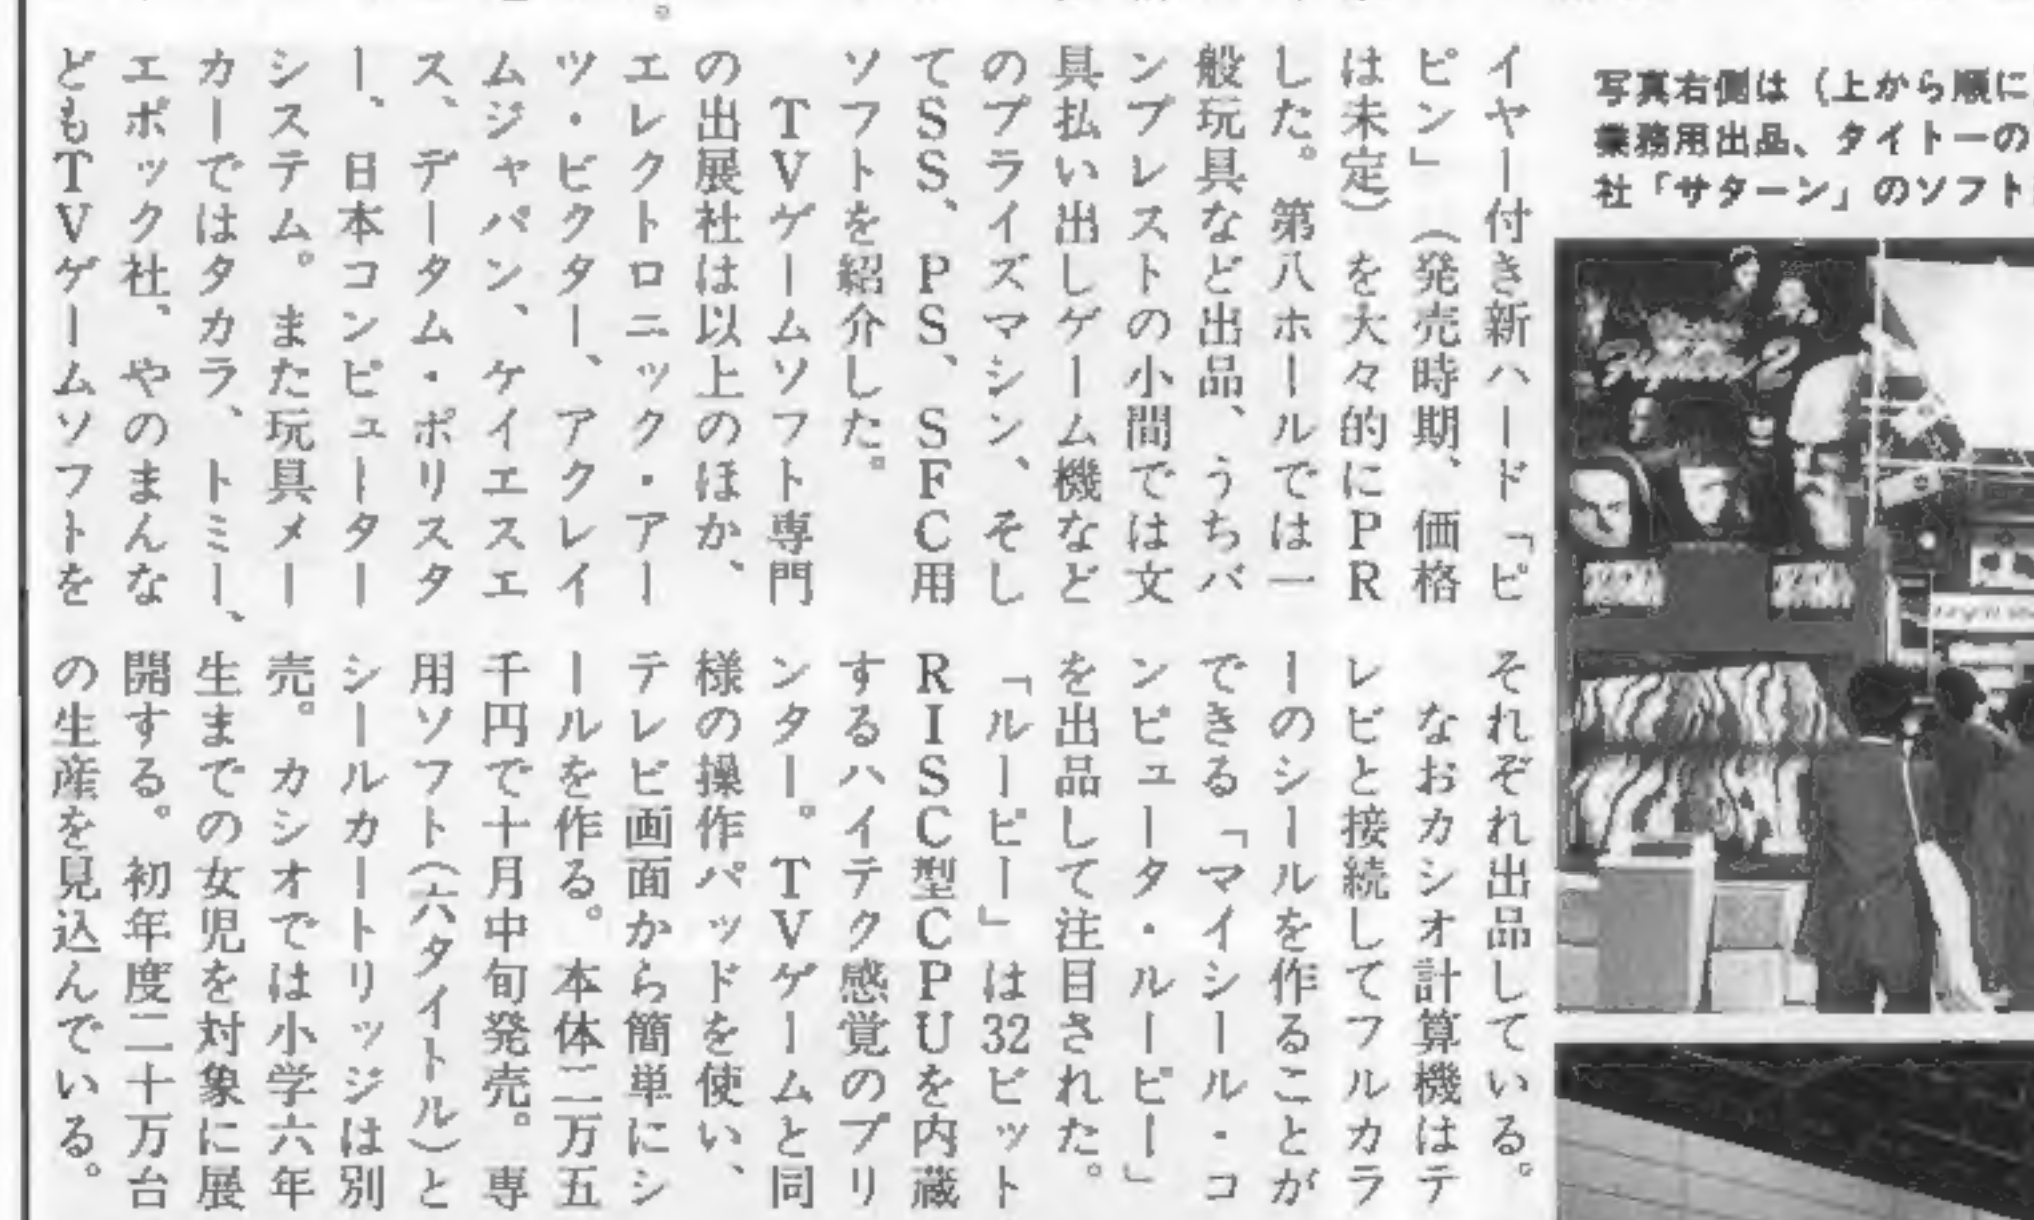 イヤー付き新ハード「ピ
ピン」（発売時期、価格
は未定）を大々的にPR
した。第八ホールでは一
般玩具など出品、うちバ
ンプレストの小間では文
具払い出しゲーム機など
のプライズマシン、そし
てSS、PS、SFC用
ソフトを紹介した。
TVゲームソフト専門
の出展社は以上のほか、
エレクトロニック・アー
ツ・ビクター、アクレイ
ムジャパン、ケイエスエ
ス、データム・ポリスタ
ー、日本コンピューター
システム。また玩具メー
カーではタカラ、トミー、
エポック社、やのまんな
どもTVゲームソフトを
それぞれ出品している。
なおカシオ計算機はテ
レビと接続してフルカラ
ーのシールを作ることが
できる「マイシール・コ
ンピュータ・ルーピー」
を出品して注目された。
「ルーピー」は32ビット
RISC型CPUを内蔵
するハイテク感覚のプリ
ンター。TVゲームと同
様の操作パッドを使い、
テレビ画面から簡単にシ
ールを作る。本体二万五
千円で十月中旬発売。専
用ソフト（六タイトル）と
シールカートリッジは別
売。カシオでは小学六年
生までの女児を対象に展
開する。初年度二十万台
の生産を見込んでいる。
写真右側は（上から順に
業務用出品、タイトーの
社「サターン」のソフト
Fighter 2